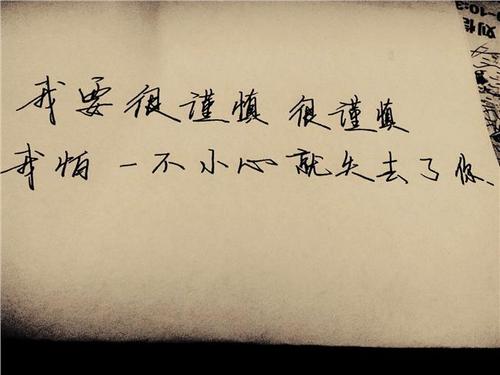 我要很谨慎 很谨慎
我怕 一不小心就失去了你、